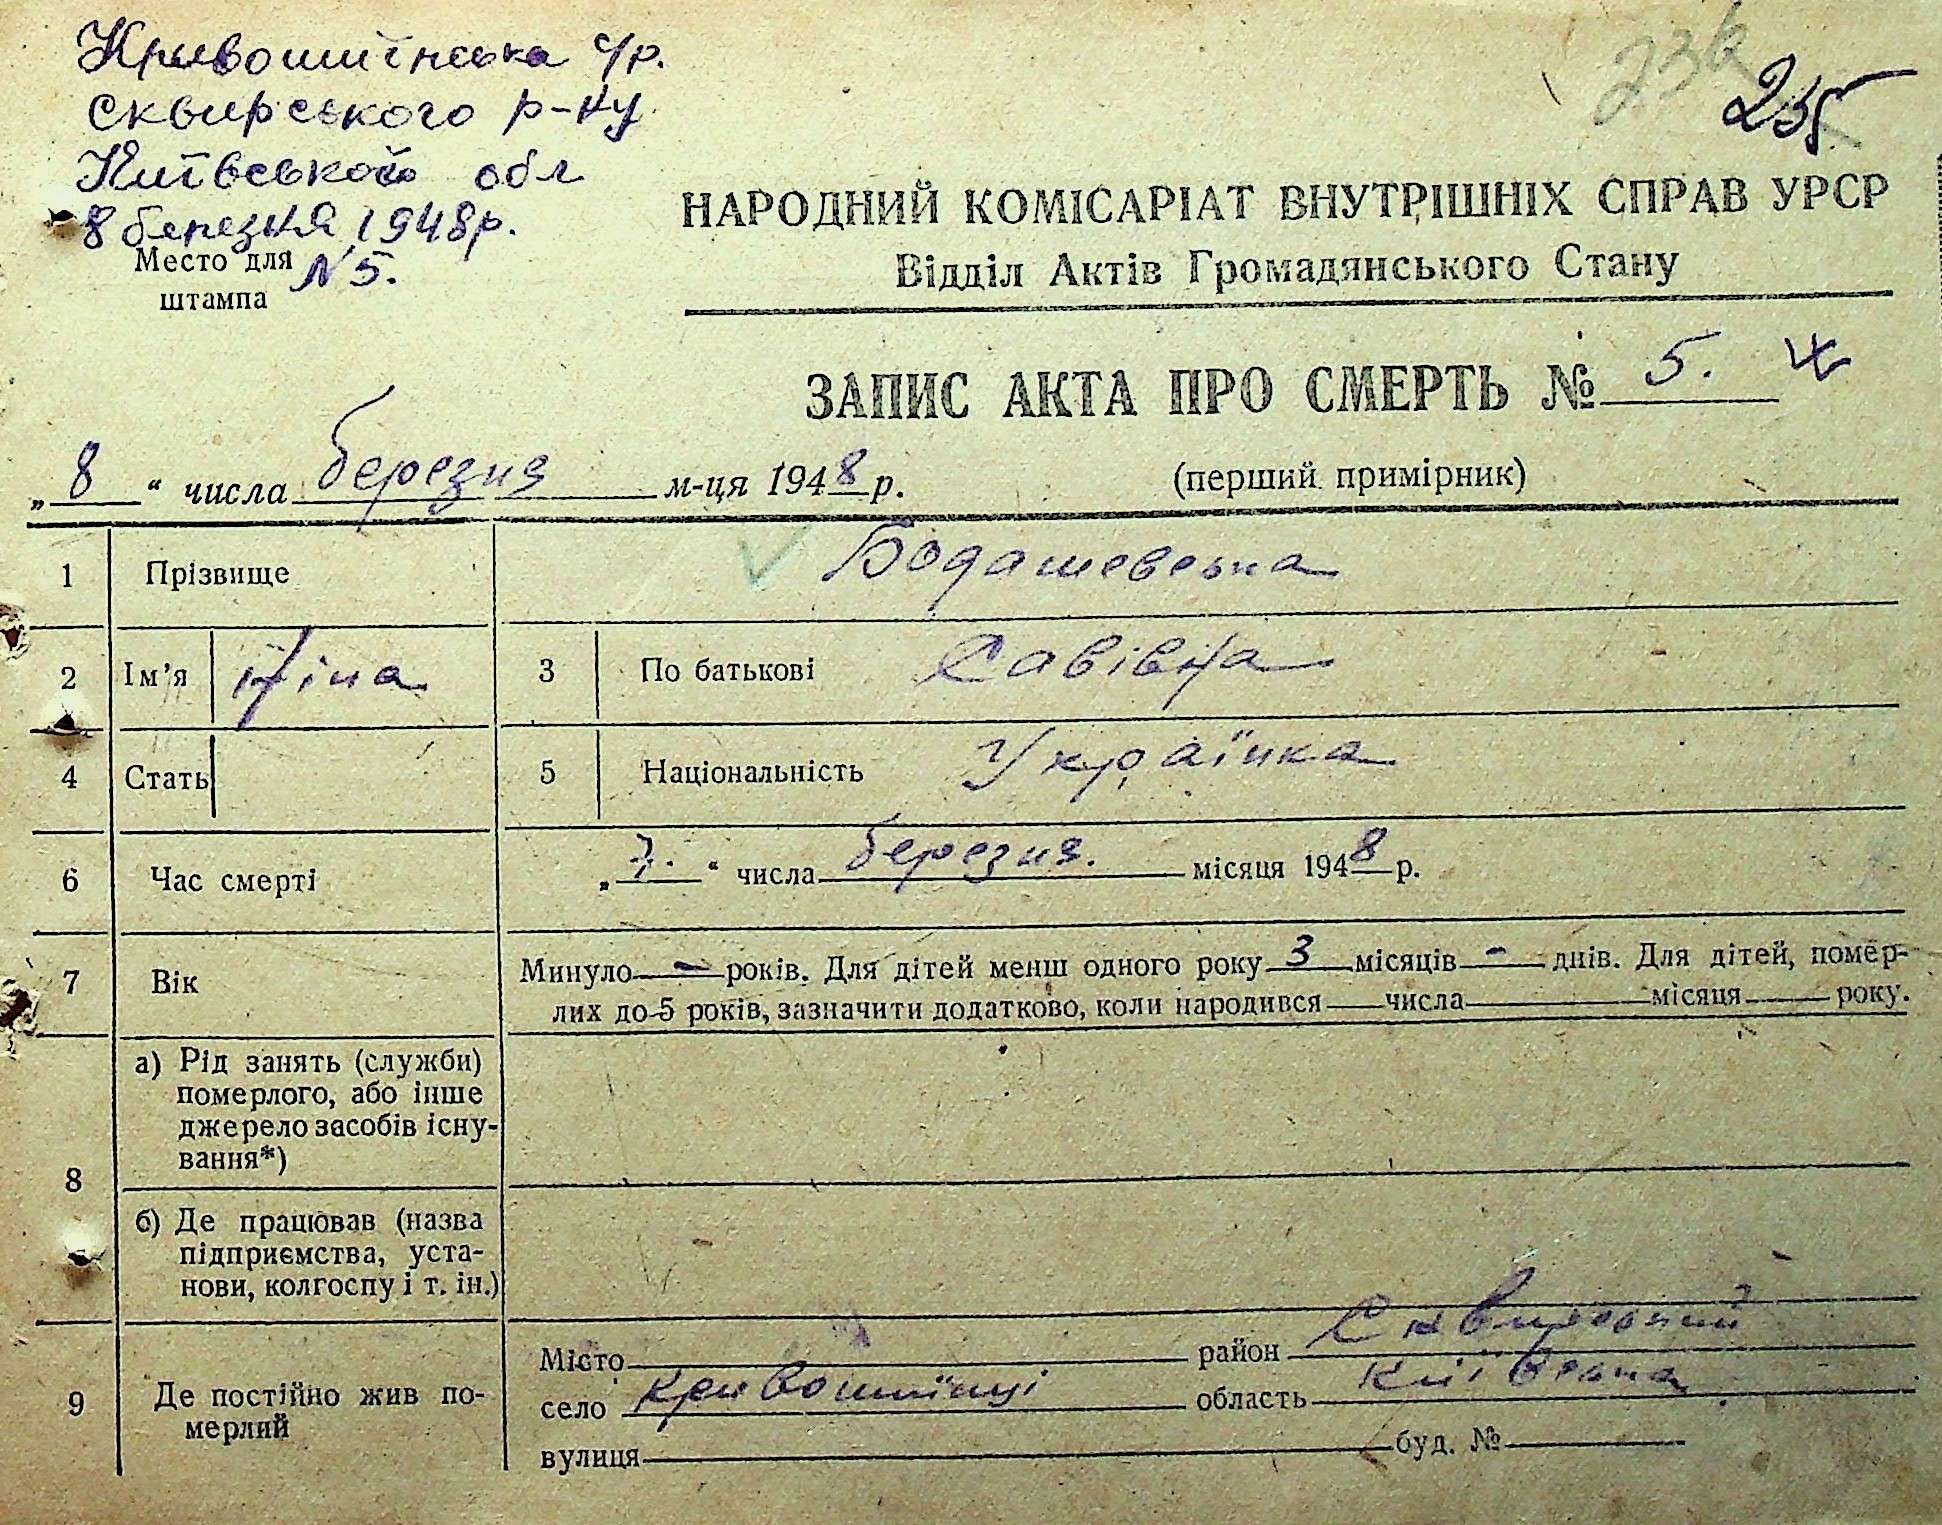 Кривошиїнська с/р.
Сквирського р-ну
Київської обл
8 березня 1948р.
Место для
штампа
N 5.
235
НАРОДНИЙ КОМІСАРІАТ ВНУТРІШНІХ СПРАВ УРСР
Відділ Актів Громадянського Стану
ЗАПИС АКТА ПРО СМЕРТЬ № 5. ж
„ 8 “ числа березня м-ця 1948 р. (перший примірник)
1 Прізвище Бодашевська
2 Ім’я Ніна 3 По батькові Савівна
4 Стать 5 Національність Українка
6 Час смерті „ 7. “ числа березня. місяця 1948 р.
7 Вік Минуло - років. Для дітей менш одного року 3 місяців - днів. Для дітей, помер-
лих до 5 років, зазначити додатково, коли народився числа місяця року.
8 а) Рід занять (служби)
померлого, або інше
джерело засобів існу-
вання*)
б) Де працював (назва
підприємства, уста-
нови, колгоспу і т. ін.)
9 Де постійно жив по-
мерлий
Місто район Сквирський
село Кривошиїнці область Київська
вулиця буд. №